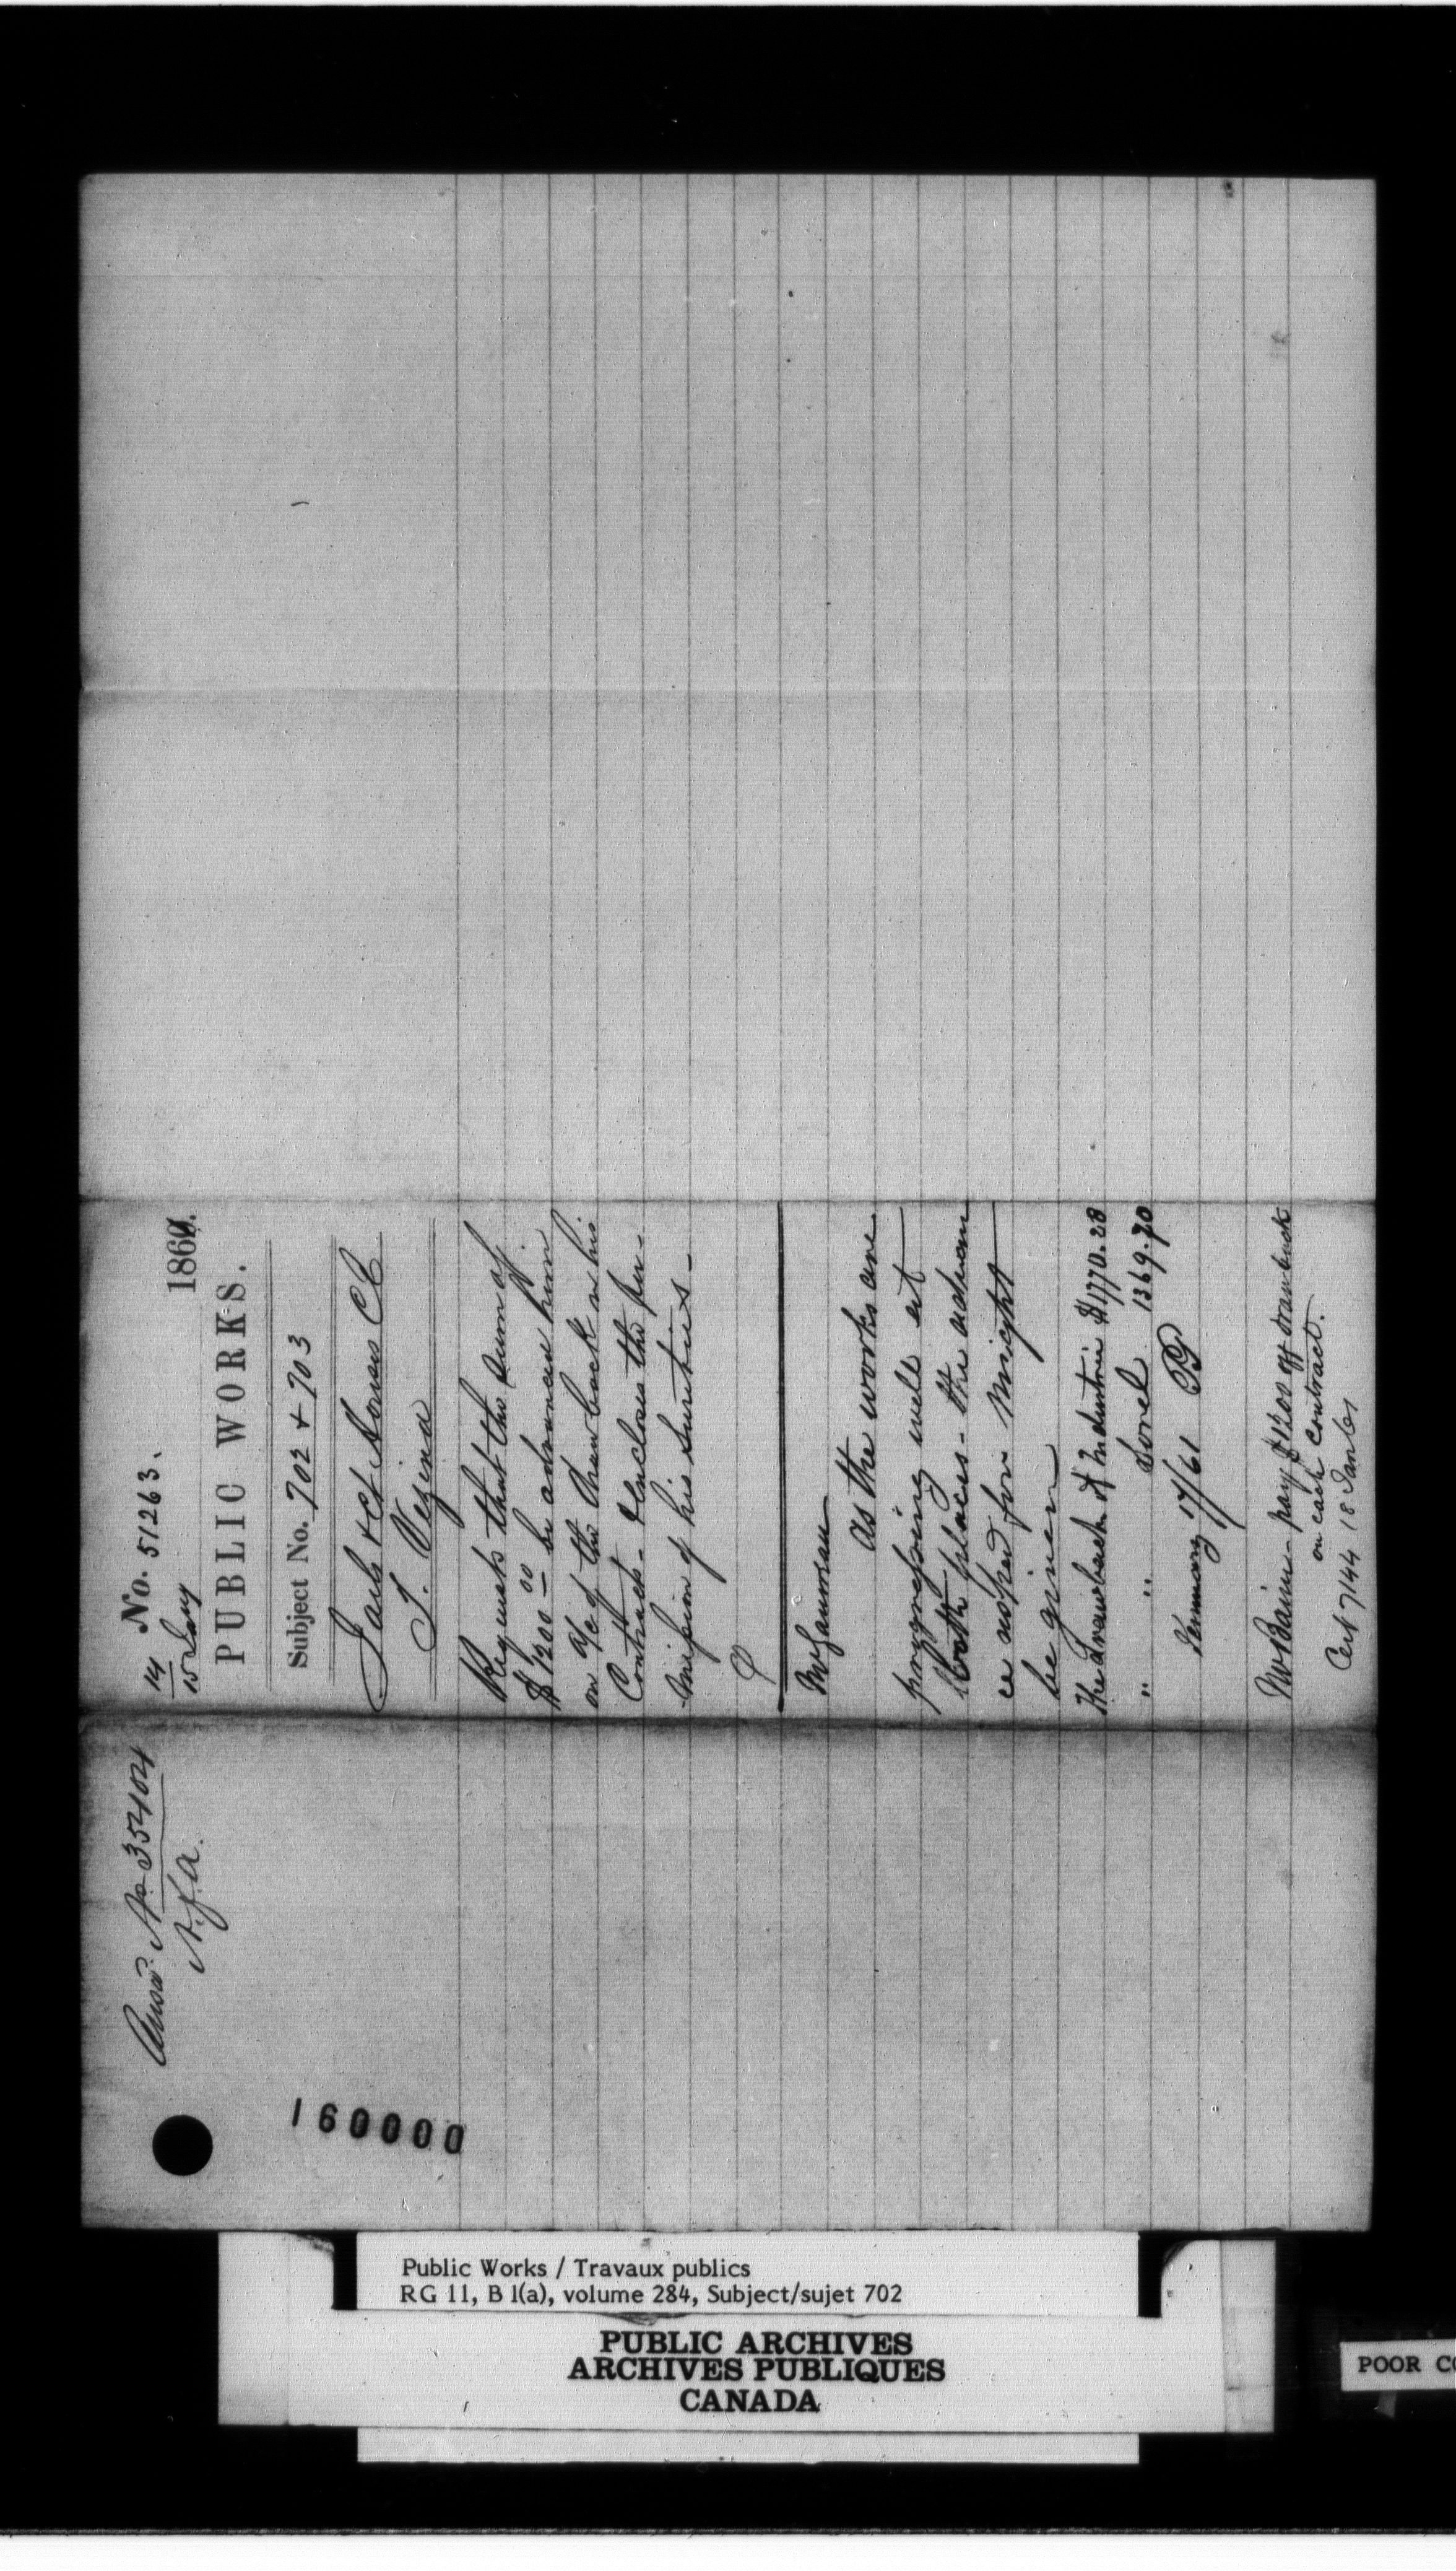 Answd. No 35404
N.f.a.
14 No. 51263.
15 Jany 1861.
PUBLIC WORKS.
Subject No. 702 & 703
Jails & Ct Houses CE
S. Vezina
Requests that the sum of
$1200.00 be advanced him
on a/c of the drawback on his
Contracts - Encloses the per-
mission of his sureties -
as the works are
progressing well at
both places - the advan
ce asked for might
be given
The drawback of Industrie $1770.28
" " Sorel 1369.70
January 17/61
Mr Baine - pay $1200 off drawback
on each contract.
Cert 7144 18 Jan 61
000091
Public Works / Travaux publics
RG 11, B 1(a), volume 284, Subject/sujet 702
PUBLIC ARCHIVES
ARCHIVES PUBLIQUES
CANADA
POOR CO